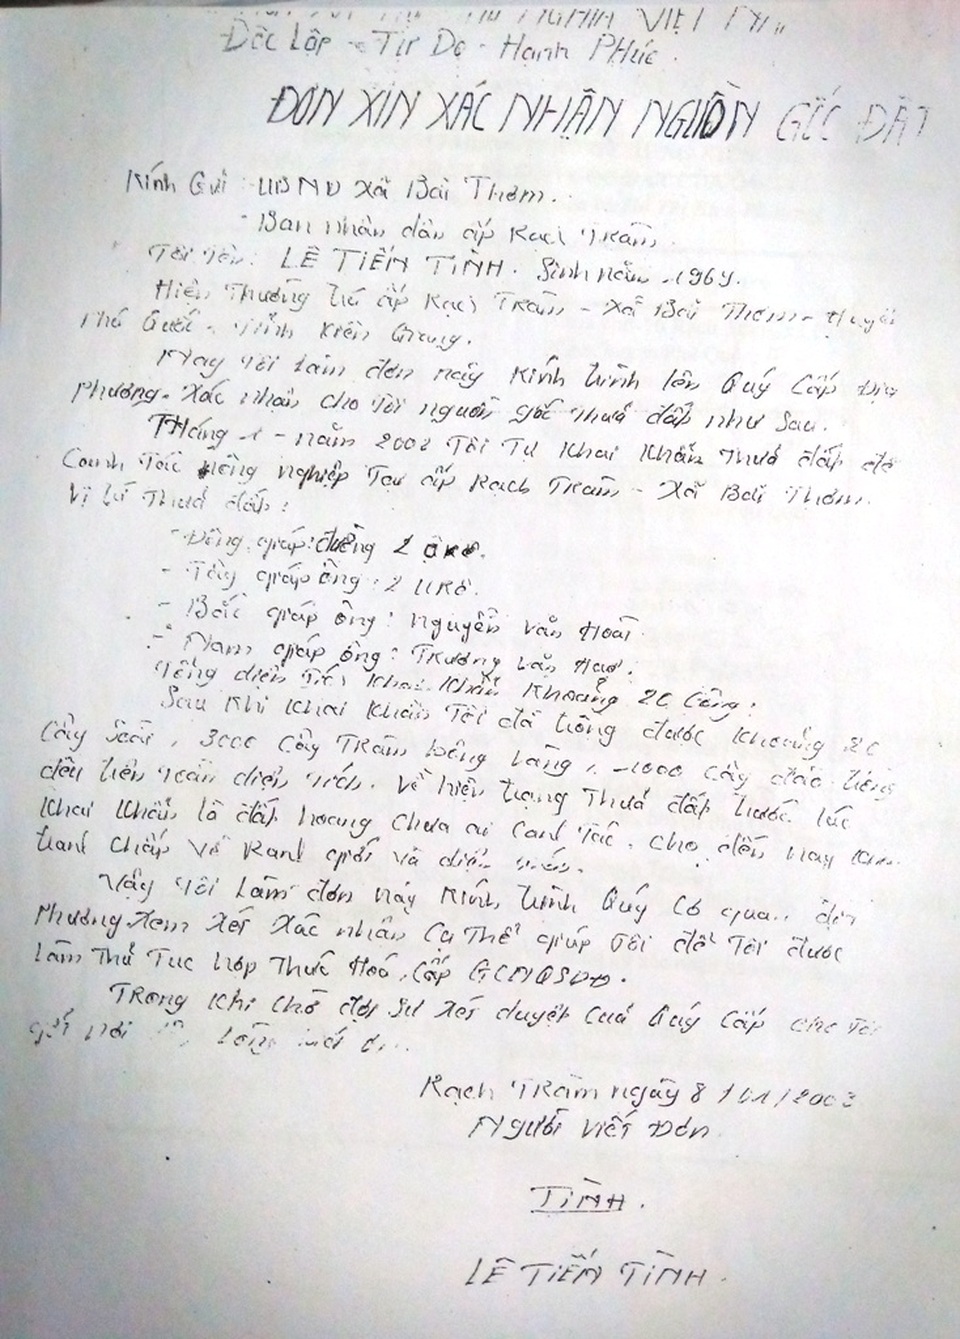 NGHĨA VIỆT
Độc Lập - Tự Do - Hạnh PHúc.
ĐƠN XIN XÁC NHẬN NGUỒN GỐC ĐẤT
Kính Gửi: UBND Xã Bãi Thơm.
- Ban nhân dân ấp Rạch Tràm.
Tôi Tên: LÊ TIẾN TÌNH. Sinh năm 1969.
Hiện Thường trú ấp Rạch Tràm - Xã Bãi Thơm - Huyện
Phú Quốc - Tỉnh Kiên Giang.
Nay Tôi Làm đơn này Kính trình lên Quý Cấp Địa
Phương. Xác nhận cho tôi nguồn gốc thửa đất như sau.
THáng 1 - năm 2002 Tôi Tự Khai Khẩn Thửa đất để
Canh Tác nông nghiệp Tại ấp Rạch Tràm - Xã Bãi Thơm.
Vị trí Thửa đất:
- Đông giáp: đường
- Tây giáp ông: 2 URÔ.
- Bắc giáp ông: Nguyễn Văn Hoài
- Nam giáp ông: Trương Văn
Tổng diện tích Khai Khẩn Khoảng 20 Công.
Sau Khi Khai Khẩn Tôi đã trồng được Khoảng 20
Cây Xoài, 3000 Cây Tràm bông Vàng, 1000 Cây đào trồng
đều trên toàn diện tích. Về hiện trạng Thửa đất trước lúc
Khai Khẩn là đất hoang chưa ai Canh Tác, cho đến nay
tranh chấp về Ranh giới và diện tích.
Vậy Tôi Làm đơn này Kính trình Quý Cơ quan địa
Phương Xem Xét Xác nhận Cụ Thể giúp Tôi để Tôi được
Làm Thủ Tục hợp Thức Hoá, Cấp GCNQSDĐ.
TRong Khi Chờ đợi Sự Xét duyệt Của Quý Cấp cho Tôi
gửi nơi lòng
Rạch TRàm ngày 8/01/2003
Người Viết Đơn
TÌNH.
LÊ TIẾN TÌNH.